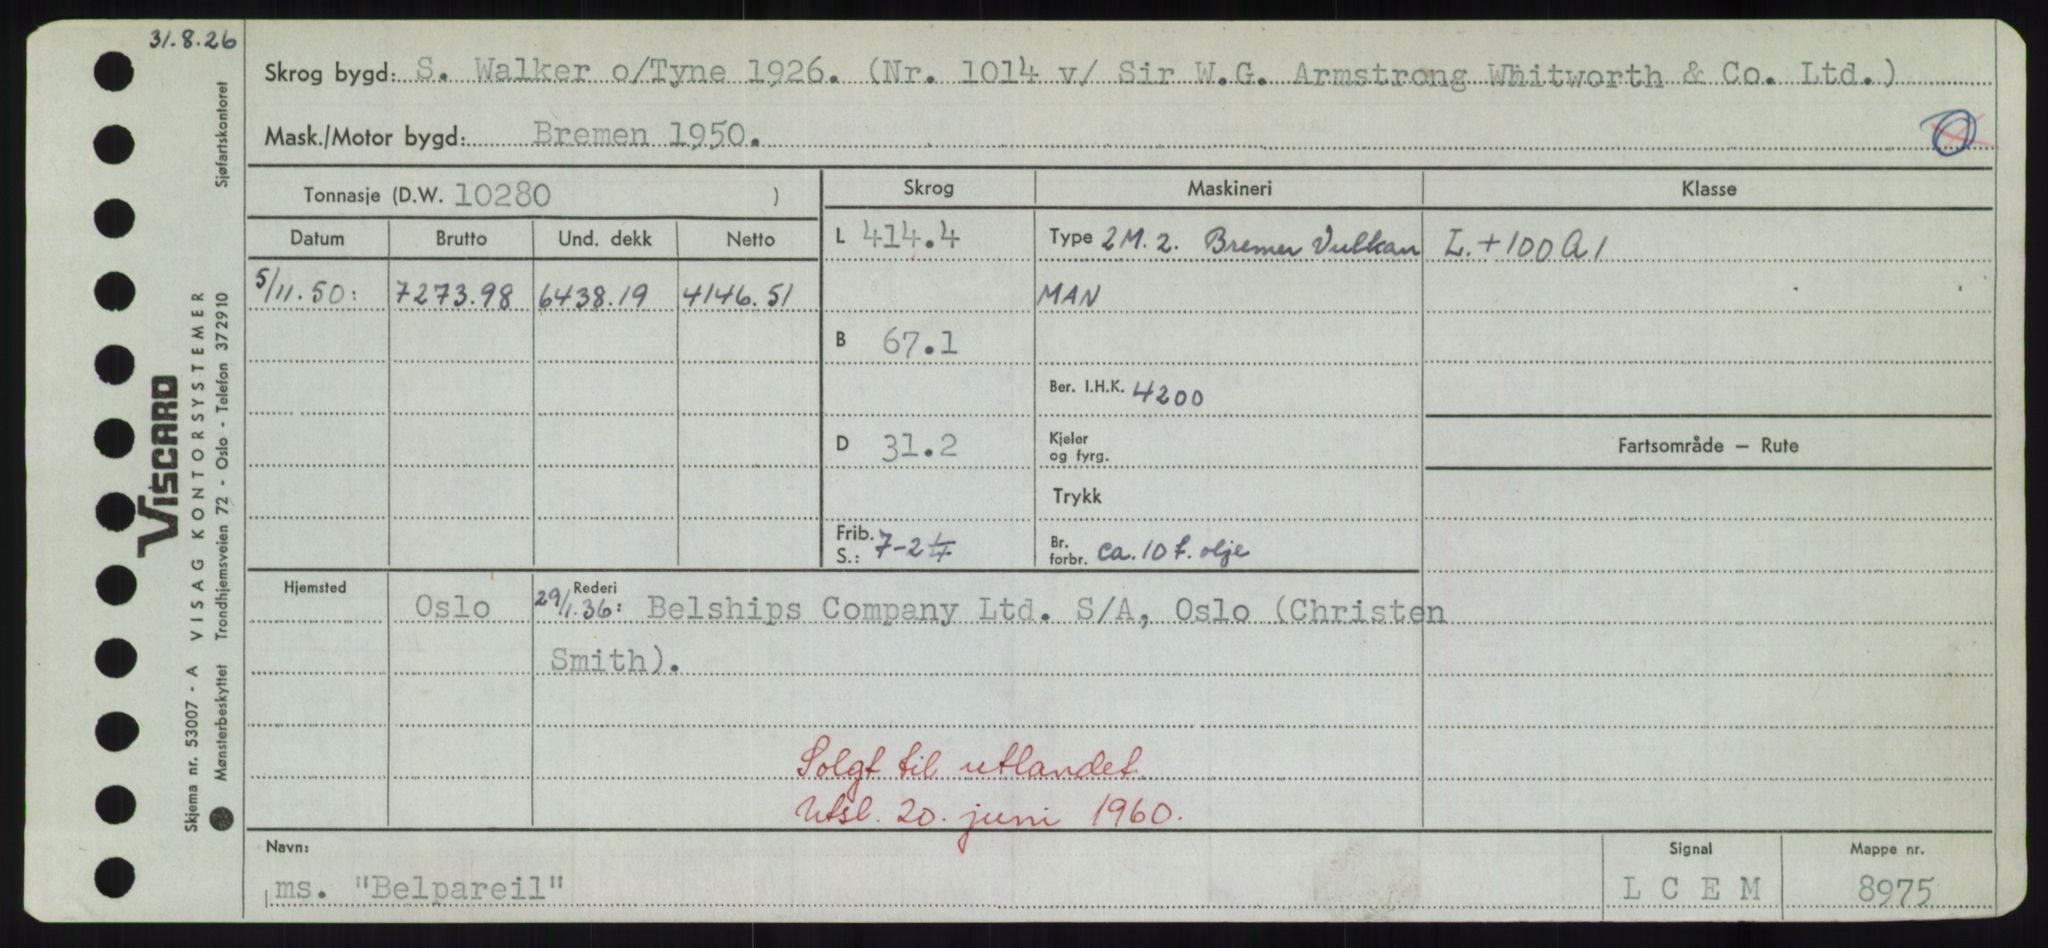 31.8.26
Skrog bygd: S. Walker o/Tyne 1926. (Nr. 1014 v/ Sir W.G. Armstrong Whitworth & Co. Ltd.)
Mask./Motor bygd: Bremen 1950.
O
Tonnasje (D.W. 10280 )
Skrog Maskineri Klasse
Datum Brutto Und. dekk Netto
L 414.4 Type 2 M. 2. Bremer Vulkan L. + 100 A 1
5/11.50: 7273.98 6438.19 4146.51 MAN
B 67.1
Ber. I.H.K. 4200
D 31.2 Kjeler
og fyrg.
Fartsområde – Rute
Trykk
Frib.
S.: 7-2 Br.
forbr. ca. 10 t. olje
Hjemsted Oslo Rederi
29/1.36: Belships Company Ltd. S/A, Oslo (Christen
Smith).
Solgt til utlandet.
Utsl. 20. juni 1960.
Navn: Signal Mappe nr.
ms. "Belpareil" L C E M 8975
VISCARD
Skjema nr. 53007 - A VISAG KONTORSYSTEMER
Mønsterbeskyttet Trondhjemsveien 72 - Oslo - Telefon 372910 Sjøfartskontoret